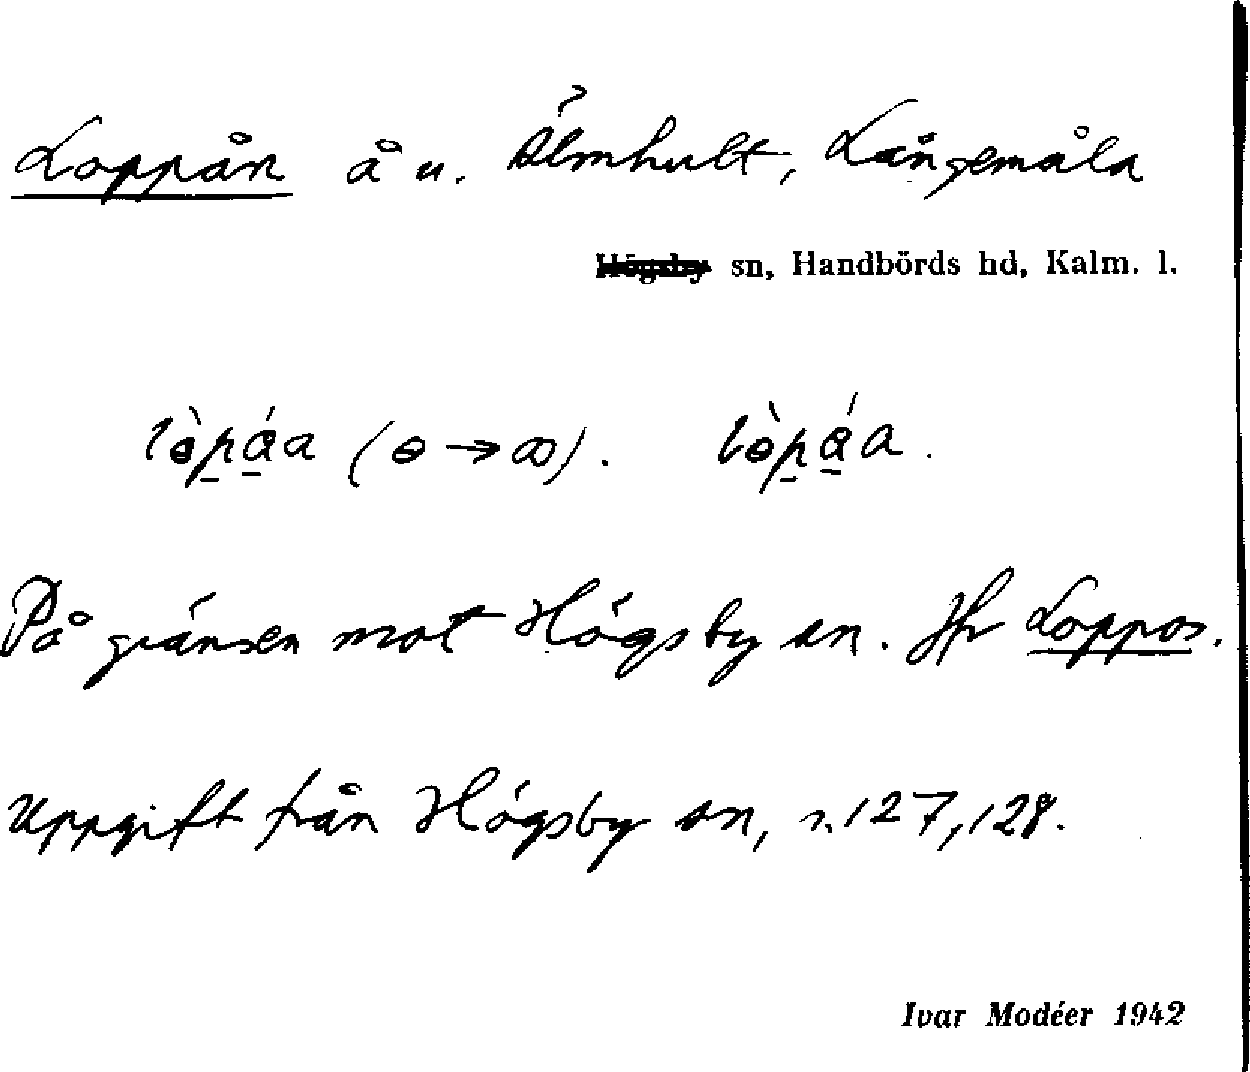 Loppån å u. Älmhult, Långemåla
Högsby sn, Handbörds hd, Kalm. l.
(ɵ → ꝏ).
På gränsen mot Högsby sn. Jfr Loppos.
Uppgift från Högsby sn, s. 127, 128.
Ivar Modéer 1942